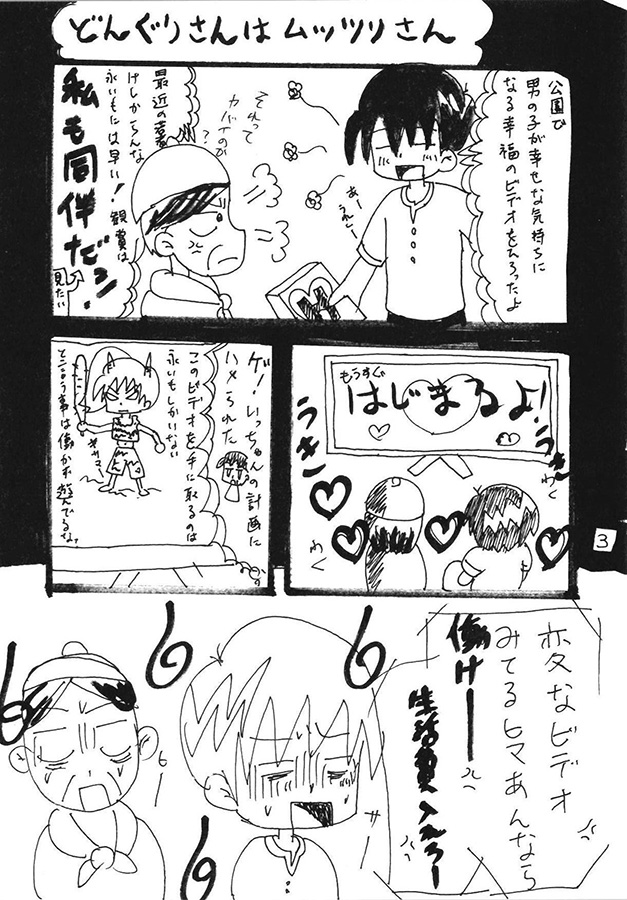 どんぐりさんはムッツリさん
公園で
男の子が幸せな気持ちに
なる幸福のビデオをひろったよ
あー
うれしー
それって
カバイのか
?
最近の
けしからんな
永いもには早い!観賞は
私も同伴だっ!
見たい
もうすぐ
はじまるよ!
うきー
うきー
わく
わく
3
ゲ!いっちゃんの計画に
ハメられた
このビデオを手に取るのは
永いもしかいない
と言う事は働かず遊んでるな。
変なビデオ
みてるヒマあんなら
働けー
生活費入れろー